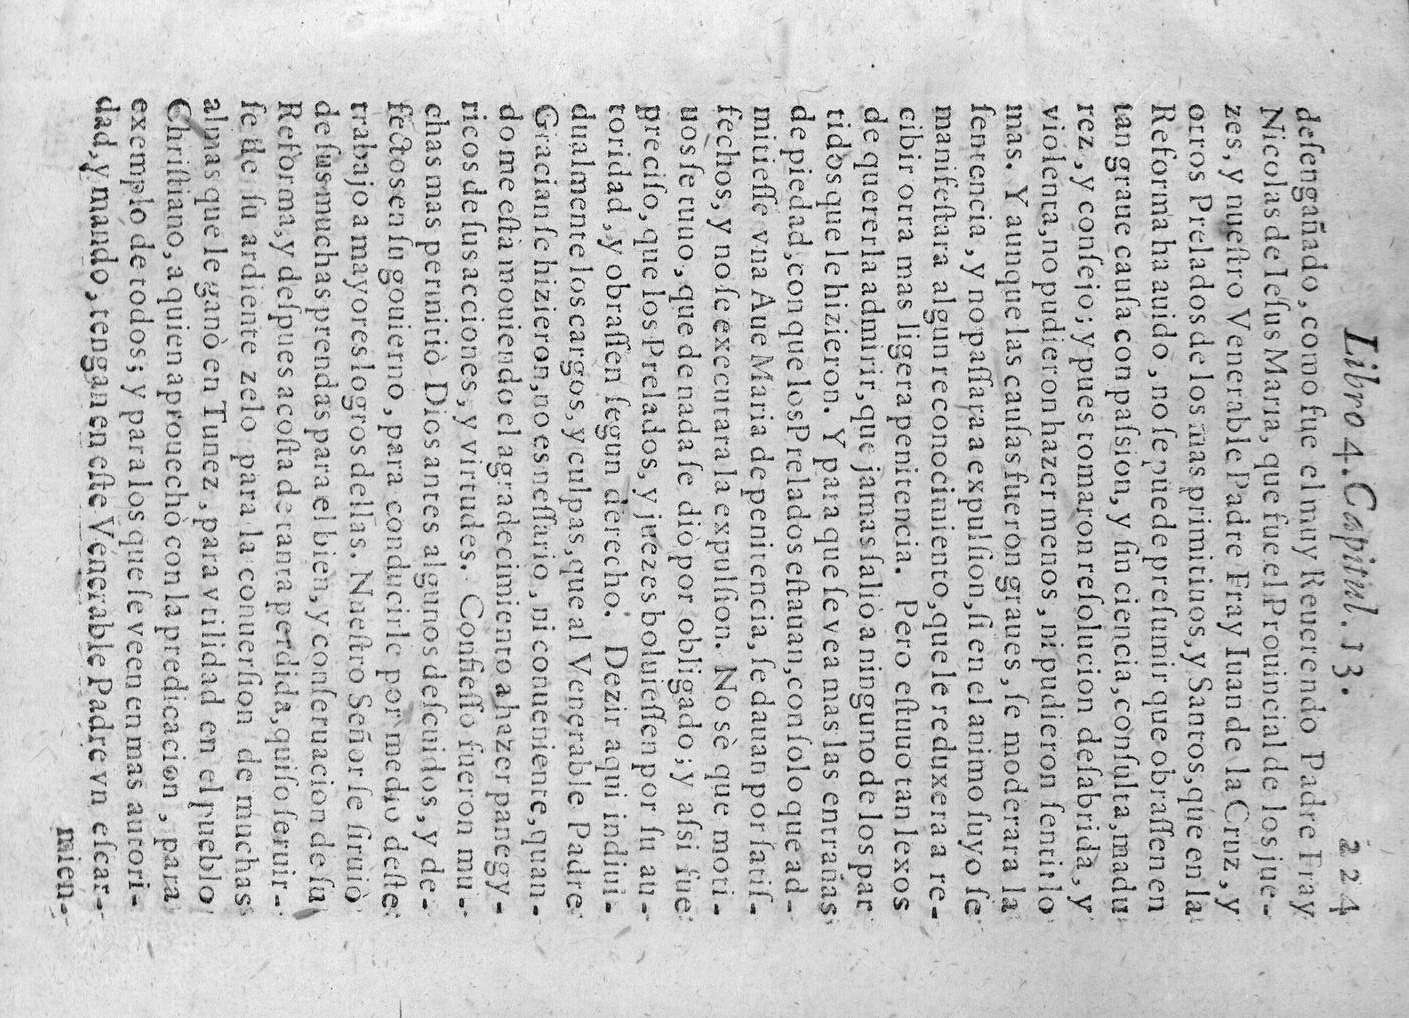 Libro 4. Capitul. 13. 224
deſengañado, como fue el muy Reuerendo Padre Fray
Nicolas de Ieſus Maria, que fue el Prouincial de los jue-
zes, y nueſtro Venerable Padre Fray Iuan de la Cruz, y
otros Prelados de los mas primitiuos, y Santos, que en la
Reforma ha auido, no ſe puede preſumir que obraſſen en
tan graue cauſa con paſsion, y ſin ciencia, conſulta, madu
rez, y conſejo; y pues tomaron reſolucion deſabrida, y
violenta, no pudieron hazer menos, ni pudieron ſentirlo
mas. Y aunque las cauſas fueron graues, ſe moderara la
ſentencia, y no paſſara a expulſion, ſi en el animo ſuyo ſe
manifeſtara algun reconocimiento, que le reduxera a re-
cibir otra mas ligera penitencia. Pero eſtuuo tan lexos
de quererla admitir, que jamas ſaliò a ninguno de los par
tidos que le hizieron. Y para que ſe vea mas las entrañas
de piedad, con que los Prelados eſtauan, con ſolo que ad-
mitieſſe vna Aue Maria de penitencia, ſe dauan por ſatiſ-
fechos, y no ſe executara la expulſion. No sè que moti-
uos ſe tuuo, que de nada ſe diò por obligado; y aſsi fue
preciſo, que los Prelados, y juezes boluieſſen por ſu au-
toridad, y obraſſen ſegun derecho. Dezir aqui indiui-
dualmente los cargos, y culpas, que al Venerable Padre
Gracian ſe hizieron, no es neſſario, ni conueniente, quan-
do me eſtà mouiendo el agradecimiento a hazer panegy-
ricos de ſus acciones, y virtudes. Confieſſo fueron mu-
chas mas permitiò Dios antes algunos deſcuidos, y de-
fectos en ſu gouierno, para conducirle por medio deſte
trabajo a mayores logros dellas. Nueſtro Señor ſe ſiruiò
de ſus muchas prendas para el bien, y conſeruacion de ſu
Reforma, y deſpues a coſta de tanta perdida, quiſo ſeruir-
ſe de ſu ardiente zelo para la conuerſion de muchas
almas que le ganò en Tunez, para vtilidad en el pueblo
Chriſtiano, a quien aprouechò con la predicacion, para
exemplo de todos; y para los que ſe veen en mas autori-
dad, y mando, tengan en eſte Venerable Padre vn eſcar-
mien-